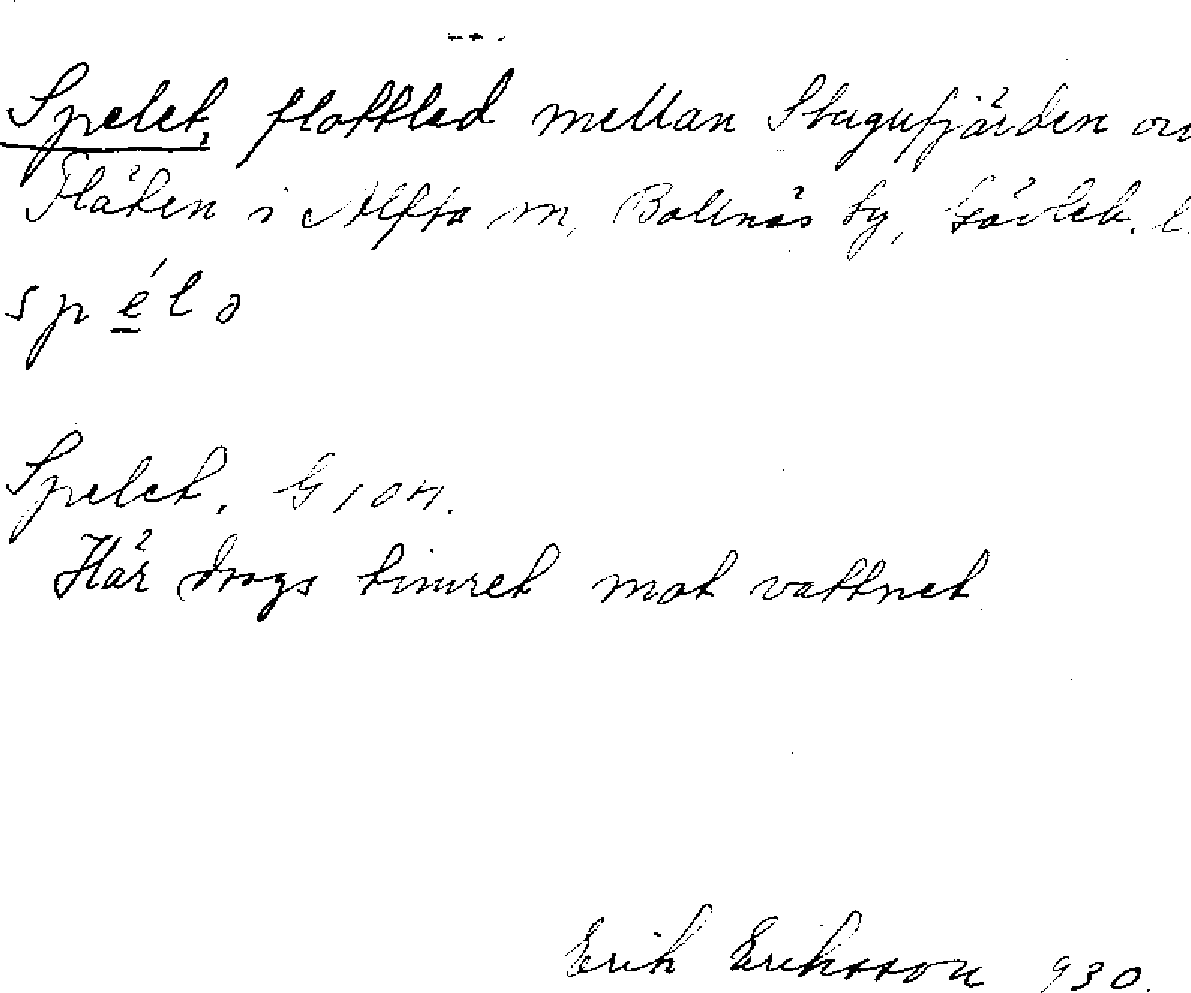 Spelet, flottled mellan Stugufjärden oc
Flåten i Alfta sn, Bollnäs ty, Gävleb. l.
spéla
Spelet. G 104.
Här drogs timret mot vattnet
Erik Eriksson 930.